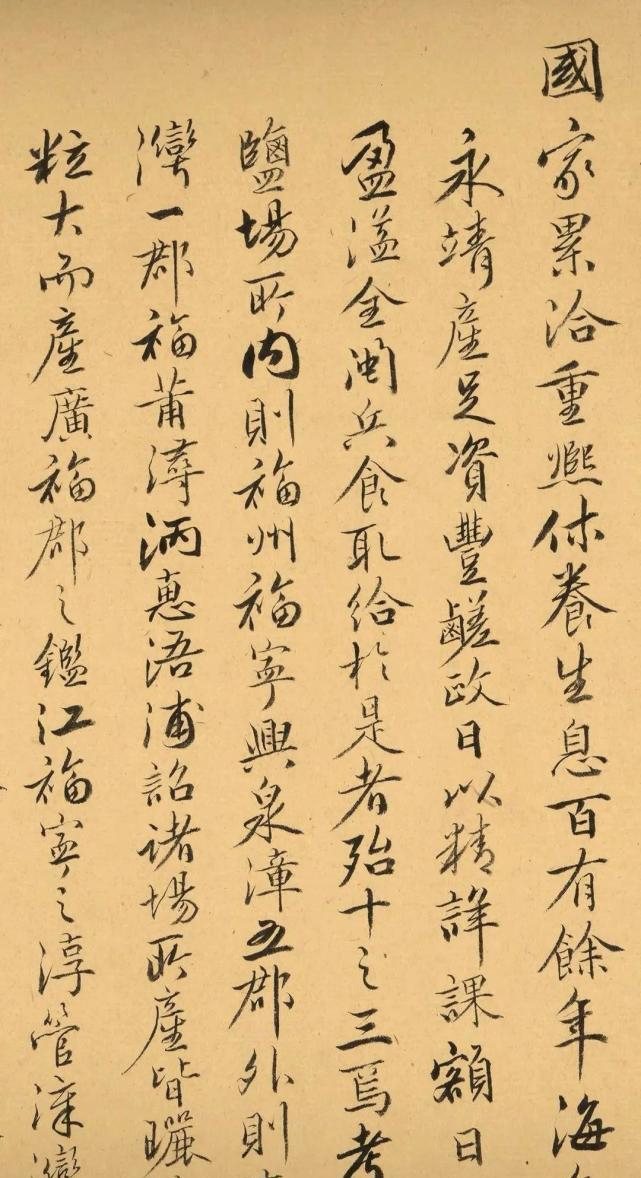 國家累洽重熙休養生息百有餘年海
永靖產足資豐鹺政日以精詳課額日
盈溢全閩兵食取給於是者殆十之三焉考
鹽場所內則福州福寧興泉漳五郡外則
灣一郡福莆潯洒惠浯浦詔諸場所產皆曬
粒大而產廣福郡之鑑江福寧之淳管漳灣